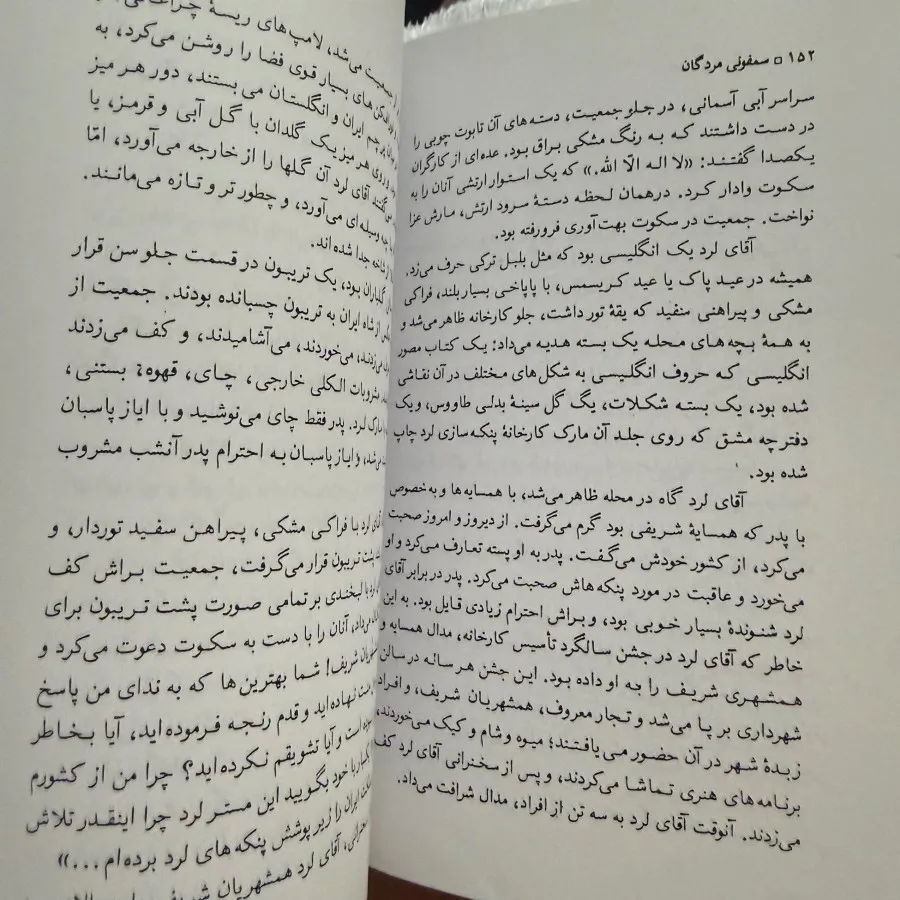 ۱۵۲ □ سمفونی مردگان
سراسر آبی آسمانی، در جلو جمعیت، دسته‌های آن تابوت چوبی را
در دست داشتند که به رنگ مشکی براق بود. عده‌ای از کارگران
یکصدا گفتند: «لا اله الّا الله.» که یک استوار ارتشی آنان را به
سکوت وادار کرد. درهمان لحظه دستهٔ سرود ارتش، مارش عزا
نواخت. جمعیت در سکوت بهت‌آوری فرورفته بود.
آقای لرد یک انگلیسی بود که مثل بلبل ترکی حرف می‌زد.
همیشه در عید پاک یا عید کریسمس، با پاپاخی بسیار بلند، فراکی
مشکی و پیراهنی سفید که یقهٔ تور داشت، جلو کارخانه ظاهر می‌شد و
به همهٔ بچه‌های محله یک بسته هدیه می‌داد: یک کتاب مصور
انگلیسی که حروف انگلیسی به شکل‌های مختلف در آن نقاشی
شده بود، یک بسته شکلات، یگ گل سینهٔ بدلی طاووس، و یک
دفترچه مشق که روی جلد آن مارک کارخانهٔ پنکه‌سازی لرد چاپ
شده بود.
آقای لرد گاه در محله ظاهر می‌شد، با همسایه‌ها و به‌خصوص
با پدر که همسایهٔ شریفی بود گرم می‌گرفت. از دیروز و امروز صحبت
می‌کرد، از کشور خودش می‌گفت. پدر به او پسته تعارف می‌کرد و او
می‌خورد و عاقبت در مورد پنکه‌هاش صحبت می‌کرد. پدر در برابر آقای
لرد شنوندهٔ بسیار خوبی بود، و براش احترام زیادی قایل بود. به این
خاطر که آقای لرد در جشن سالگرد تأسیس کارخانه، مدال همسایه و
همشهری شریف را به او داده بود. این جشن هر ساله در سالن
شهرداری بر پا می‌شد و تجار معروف، همشهریان شریف، و افراد
زبدهٔ شهر در آن حضور می‌یافتند؛ میوه و شام و کیک می‌خوردند،
برنامه‌های هنری تماشا می‌کردند، و پس از سخنرانی آقای لرد کف
می‌زدند. آنوقت آقای لرد به سه تن از افراد، مدال شرافت می‌داد.
جمعیت می‌شد، لامپ‌های ریسهٔ
های بسیار قوی فضا را روشن می‌کرد، به
پرچم ایران و انگلستان می‌بستند، دور هر میز
روی هر میز یک گلدان با گل آبی و قرمز، یا
گفتند آقای لرد آن گلها را از خارجه می‌آورد، امّا
چه وسیله‌ای می‌آورد، و چطور تر و تازه می‌مانند.
شاخه جدا شده‌اند.
گلباران بود، یک تریبون در قسمت جلو سن قرار
از شاه ایران به تریبون چسبانده بودند. جمعیت از
می‌خوردند، می‌آشامیدند، و کف می‌زدند
مشروبات الکلی خارجی، چای، قهوه، بستنی،
لرد. پدر فقط چای می‌نوشید و با ایاز پاسبان
و ایاز پاسبان به احترام پدر آنشب مشروب
آقای لرد با فراکی مشکی، پیراهن سفید توردار، و
پشت تریبون قرار می‌گرفت، جمعیت براش کف
با لبخندی بر تمامی صورت پشت تریبون برای
آنان را با دست به سکوت دعوت می‌کرد و
شریف! شما بهترین‌ها که به ندای من پاسخ
نهاده‌اید و قدم رنجه فرموده‌اید، آیا بخاطر
است و آیا تشویقم نکرده‌اید؟ چرا من از کشورم
با خود بگویید این مستر لرد چرا اینقدر تلاش
ایران را زیر پوشش پنکه‌های لرد برده‌ام...»
آقای لرد همشهریان